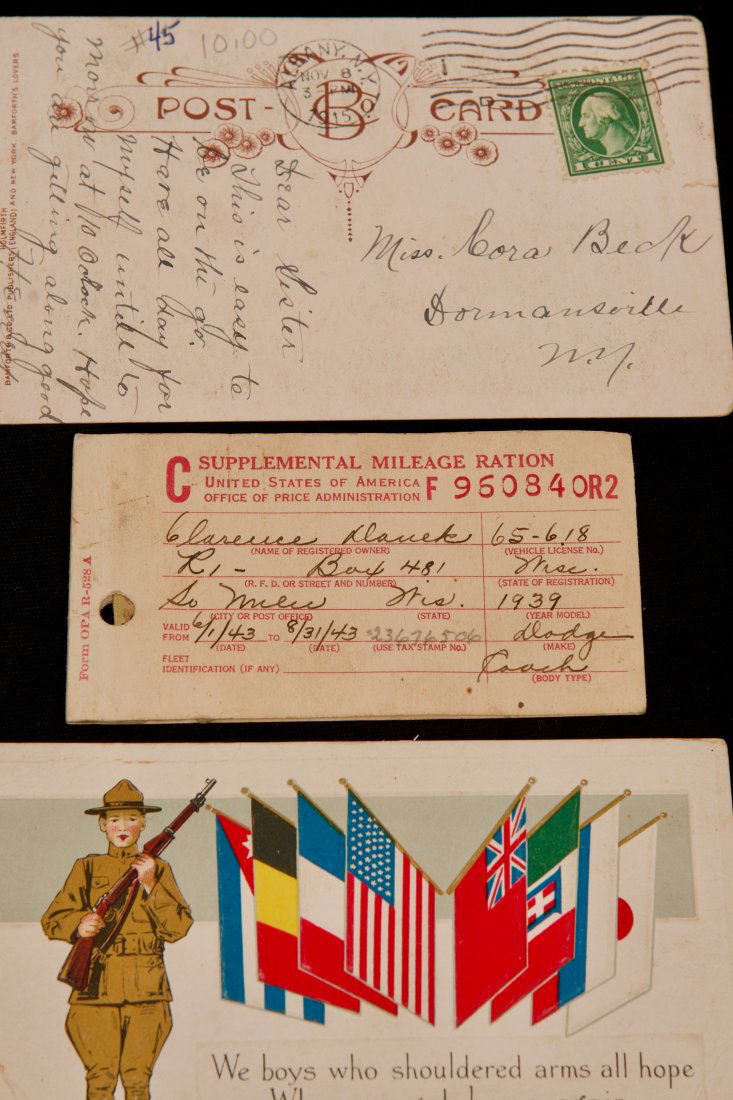 #45
10.00
ALBANY, N.Y.
NOV 8
3 PM
1915
POST-CARD
1 CENT 1
Dear Sister
This is easy to
be on the go.
Have all day for
Myself until to
Morrow at 10 Oclock. Hope
you are getting along good
Miss. Cora Beck
Dormansville
N.Y.
BAMFORTH & CO. LTD PUBLISHERS (ENGLAND) AND NEW YORK. BAMFORTH'S LOVERS.
HOLMFIRTH
C SUPPLEMENTAL MILEAGE RATION
UNITED STATES OF AMERICA
OFFICE OF PRICE ADMINISTRATION F 960840R2
Clarence Danek 65-618
(NAME OF REGISTERED OWNER) (VEHICLE LICENSE NO.)
R1 - Box 481 Wisc.
(R. F. D. OR STREET AND NUMBER) (STATE OF REGISTRATION)
So Milw Wis. 1939
(CITY OR POST OFFICE) (STATE) (YEAR MODEL)
VALID FROM 6/1/43 TO 8/31/43 23676506 Dodge
(DATE) (DATE) (USE TAX STAMP No.) (MAKE)
FLEET
IDENTIFICATION (IF ANY) Coach
(BODY TYPE)
Form OPA R-528 A
We boys who shouldered arms all hope